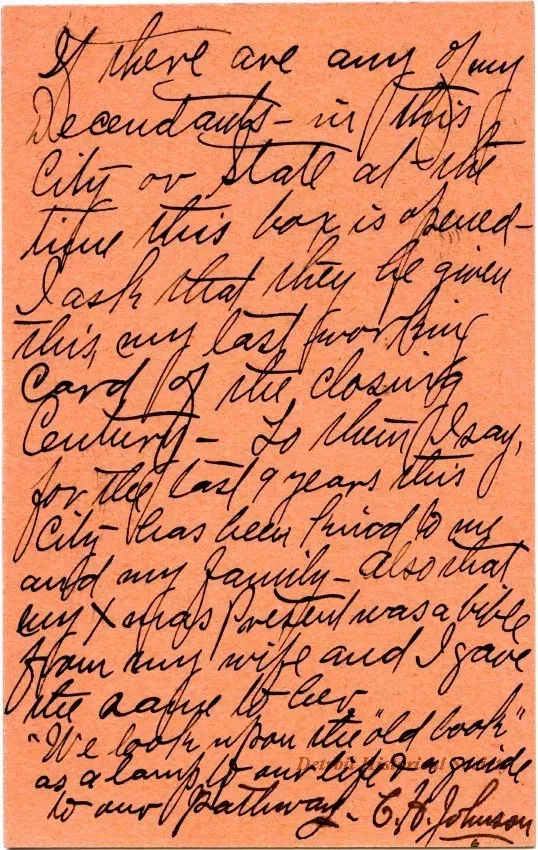 If there are any of my
Decendants - in this
City or State at - the
time this box is opened -
I ask that they be given
this, my last working
Card of the closing
Century - To them I say,
for the last 9 years this
City has been kind to me
and my family - Also that
my Xmas present was a bible
from my wife and I gave
the same to her.
"We look upon the "old book"
as a lamp to our life & a guide
to our Pathway - C. H. Johnson
Detroit Historical Society